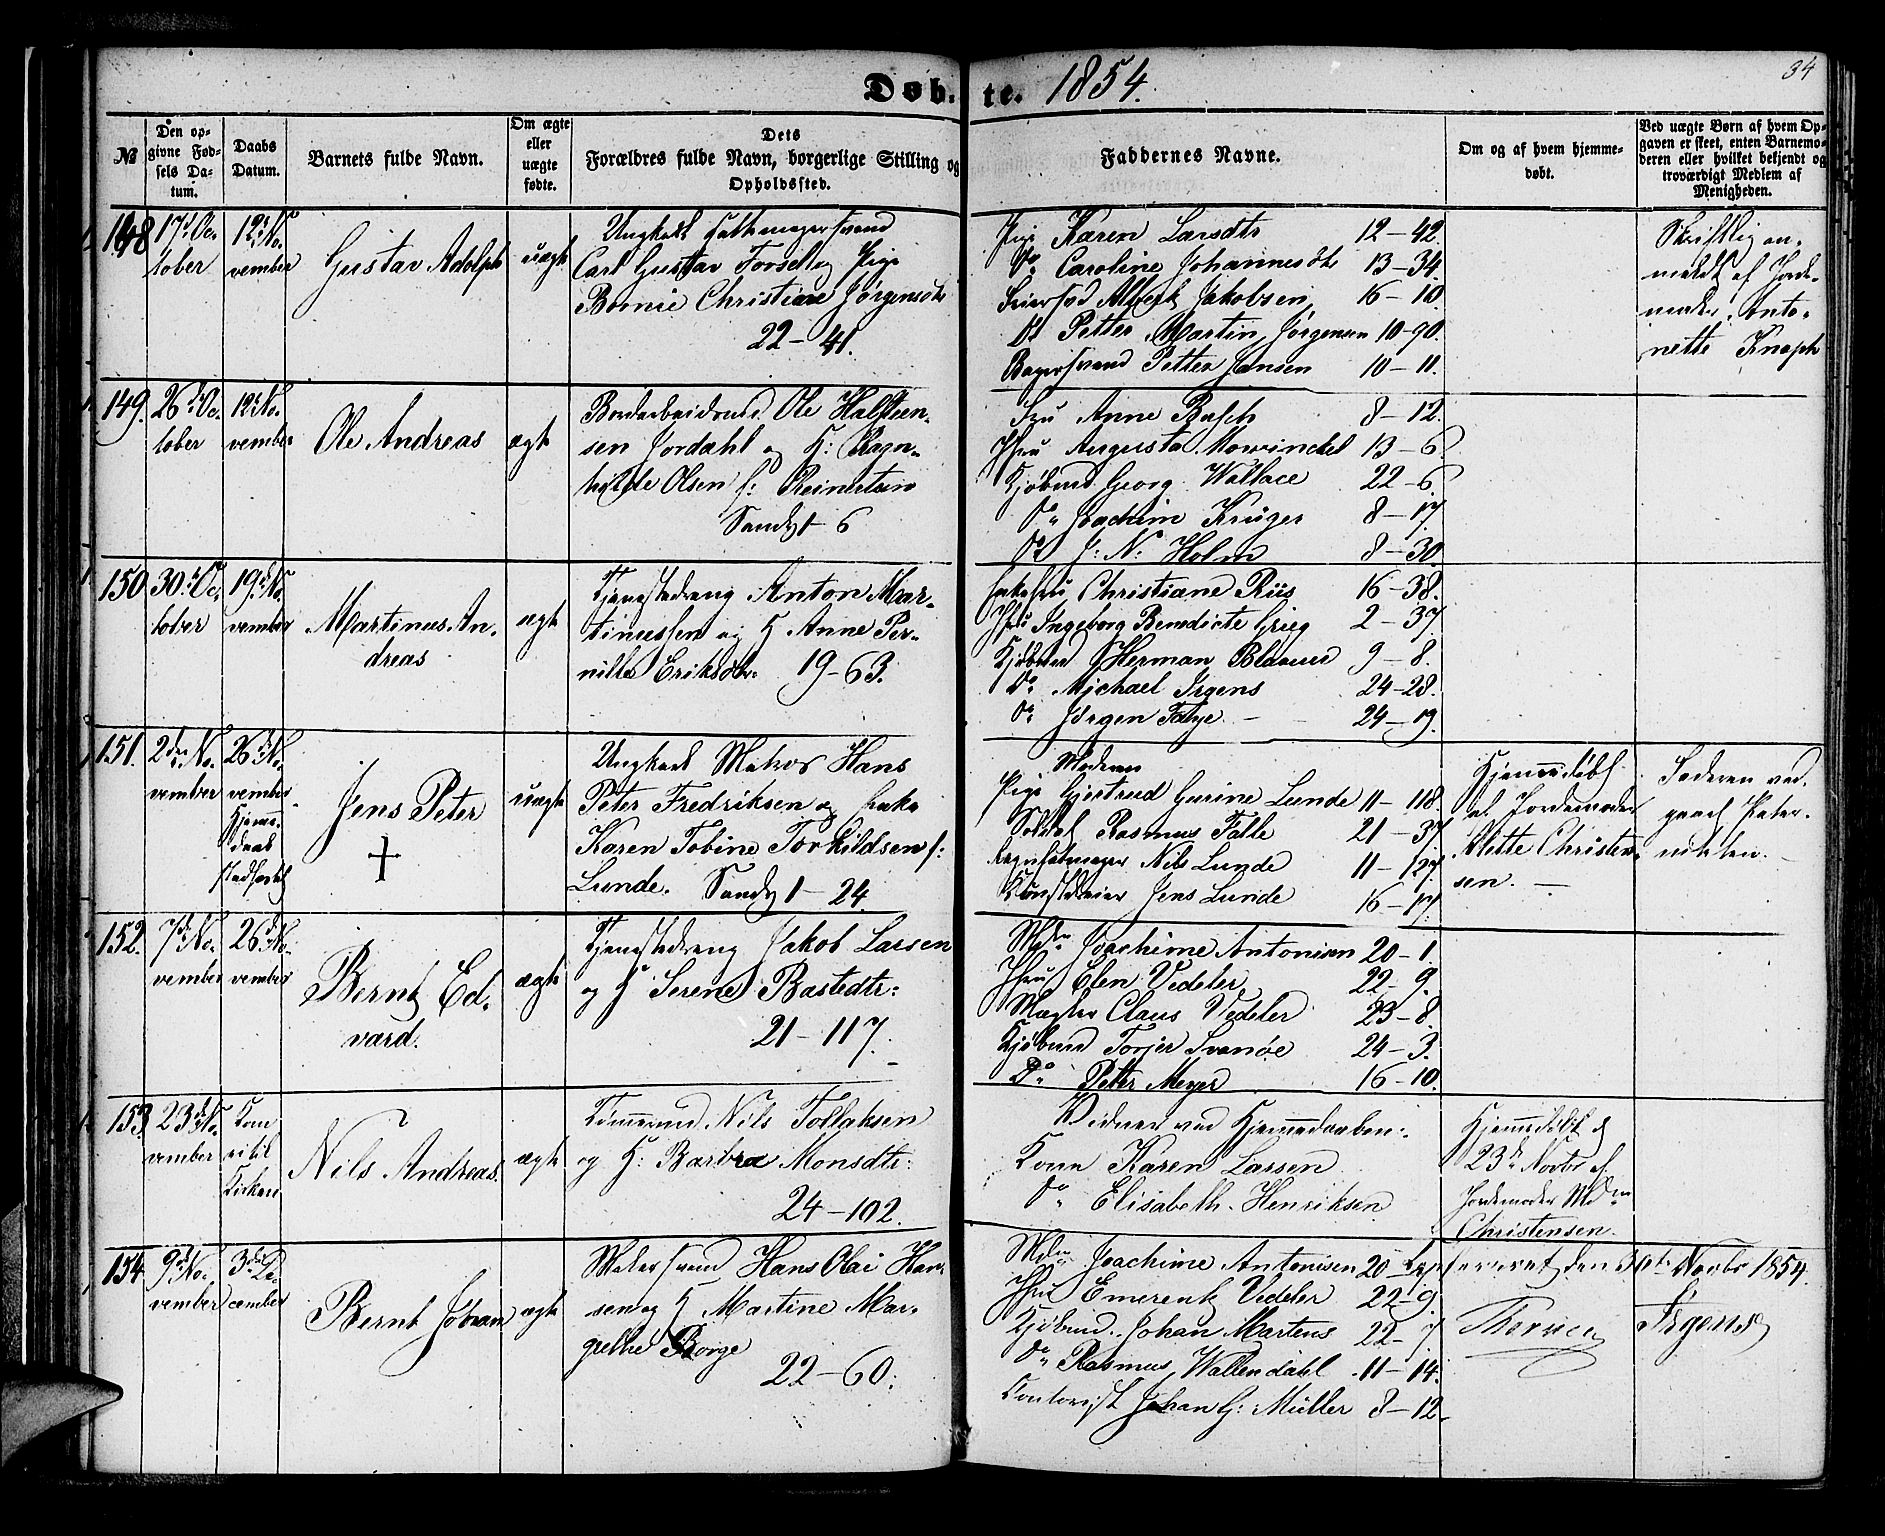 34
Døb- te. 1854.
№
Den opgivne Fødsels Datum.
Daabs Datum.
Barnets fulde Navn.
Om ægte eller uægte fødte.
Dets Forældres fulde Navn, borgerlige Stilling og Opholdssted.
Faddernes Navne.
Om og af hvem hjemmedøbt.
Ved uægte Børn af hvem Opgaven er skeet, enten Barnemoderen eller hvilket bekjendt og troværdigt Medlem af Menigheden.
148
17d. Oc-
tober
12t. No-
vember
Gustav Adolph
uægte
Ungkarl
Carl Gustav Forsel og Pige
Christiane Jørgensdtr
22-41.
Pige Karen Larsdtr 12-42.
Do Caroline Johannesdtr 13-34.
Albert Jakobsen 16-10
Do Petter Martin Jørgensen 10-90.
Bagersvend Petter Jansen 10-11.
Skriftlig an-
meldt af Jorde-
moder Anto-
nette Knaph
149.
26d. Oc-
tober
12t. No-
vember
Ole Andreas
ægte
Bordarbeidsmd. Ole Halsteen-
sen Jordahl og K: Ragn-
hilde Olsen f: Reinertsen
Sandv 1-6
Fru Anne Busch 8-12.
Jfru Augusta Mowinckel 13-6.
Kjøbmd Georg Wallace 22-6.
Do Joachim Krüger 8-17
Do J: N: Holm 8-30.
150
30d. Oc-
tober
19d. No-
vember
Martinus An-
dreas
ægte
Tjenestedreng Anton Mar-
tinussen og K Anne Per-
nille Eriksdtr. 19-63.
Christiane Riis 16-38.
Jfru Ingeborg Benedicte Grieg 2-37
Kjøbmd Herman Blaauw 9-8.
Do Michael Irgens 24-28.
Do Jørgen Fahje 24-19.
151.
2den No-
vember
26d. No-
vember
Hjemme-
daab
stadfæstet
Jens Peter
+
uægte
Ungkarl Matros Hans
Peter Fredriksen og Enke
Karen Tobine Torkildsen f:
Lunde. Sandv 1-24
Moderen
Pige Gjertrud Gurine Lunde 11-118.
Soldat Rasmus Falle 21-37
Nils Lunde 11-127
Kunstdreier Jens Lunde 16-17
Hjemmedøbt
af Jordemoder
Mette Christen-
sen.
Faderen ved-
gaaet Pater-
niteten.
152.
7d. No-
vember
26d. No-
vember
Bernt Ed-
vard.
ægte
Tjenestedreng Jakob Larsen
og K Serene Bastedtr:
21-117.
Mdm Joachime Antonisen 20-1.
Jfru Elen Vedeler 22-9.
Mægler Claus Vedeler 23-8.
Kjøbmd Torjer Svanøe 24-3.
Do Peter Meyer 16-10.
153
23d. No-
vember
Kom
ei til
Kirken
Nils Andreas
ægte
Tømmermd Nils Tollaksen
og K: Barbra Monsdtr:
24-102.
Vidner ved Hjemmedaaben:
Kone Karen Larsen
Do Elisabeth Henriksen
Hjemmedøbt d
23d. Novbr af
Jordemoder Mdm
Christensen.
154
9d. No-
vember
3die De-
cember
Bernt Johan
ægte
Malersvend Hans Olai Han-
sen og K Martine Mar-
grethe Borge
22-60.
Mdm Joachime Antonisen 20-1
Jfru Emerentz Vedeler 22-9.
Kjøbmd. Johan Martens 22-7
Do Rasmus Wallendahl 11-14.
Contorist Johan G: Müller 8-12
Confereret den 30te Novbr 1854.
Irgens